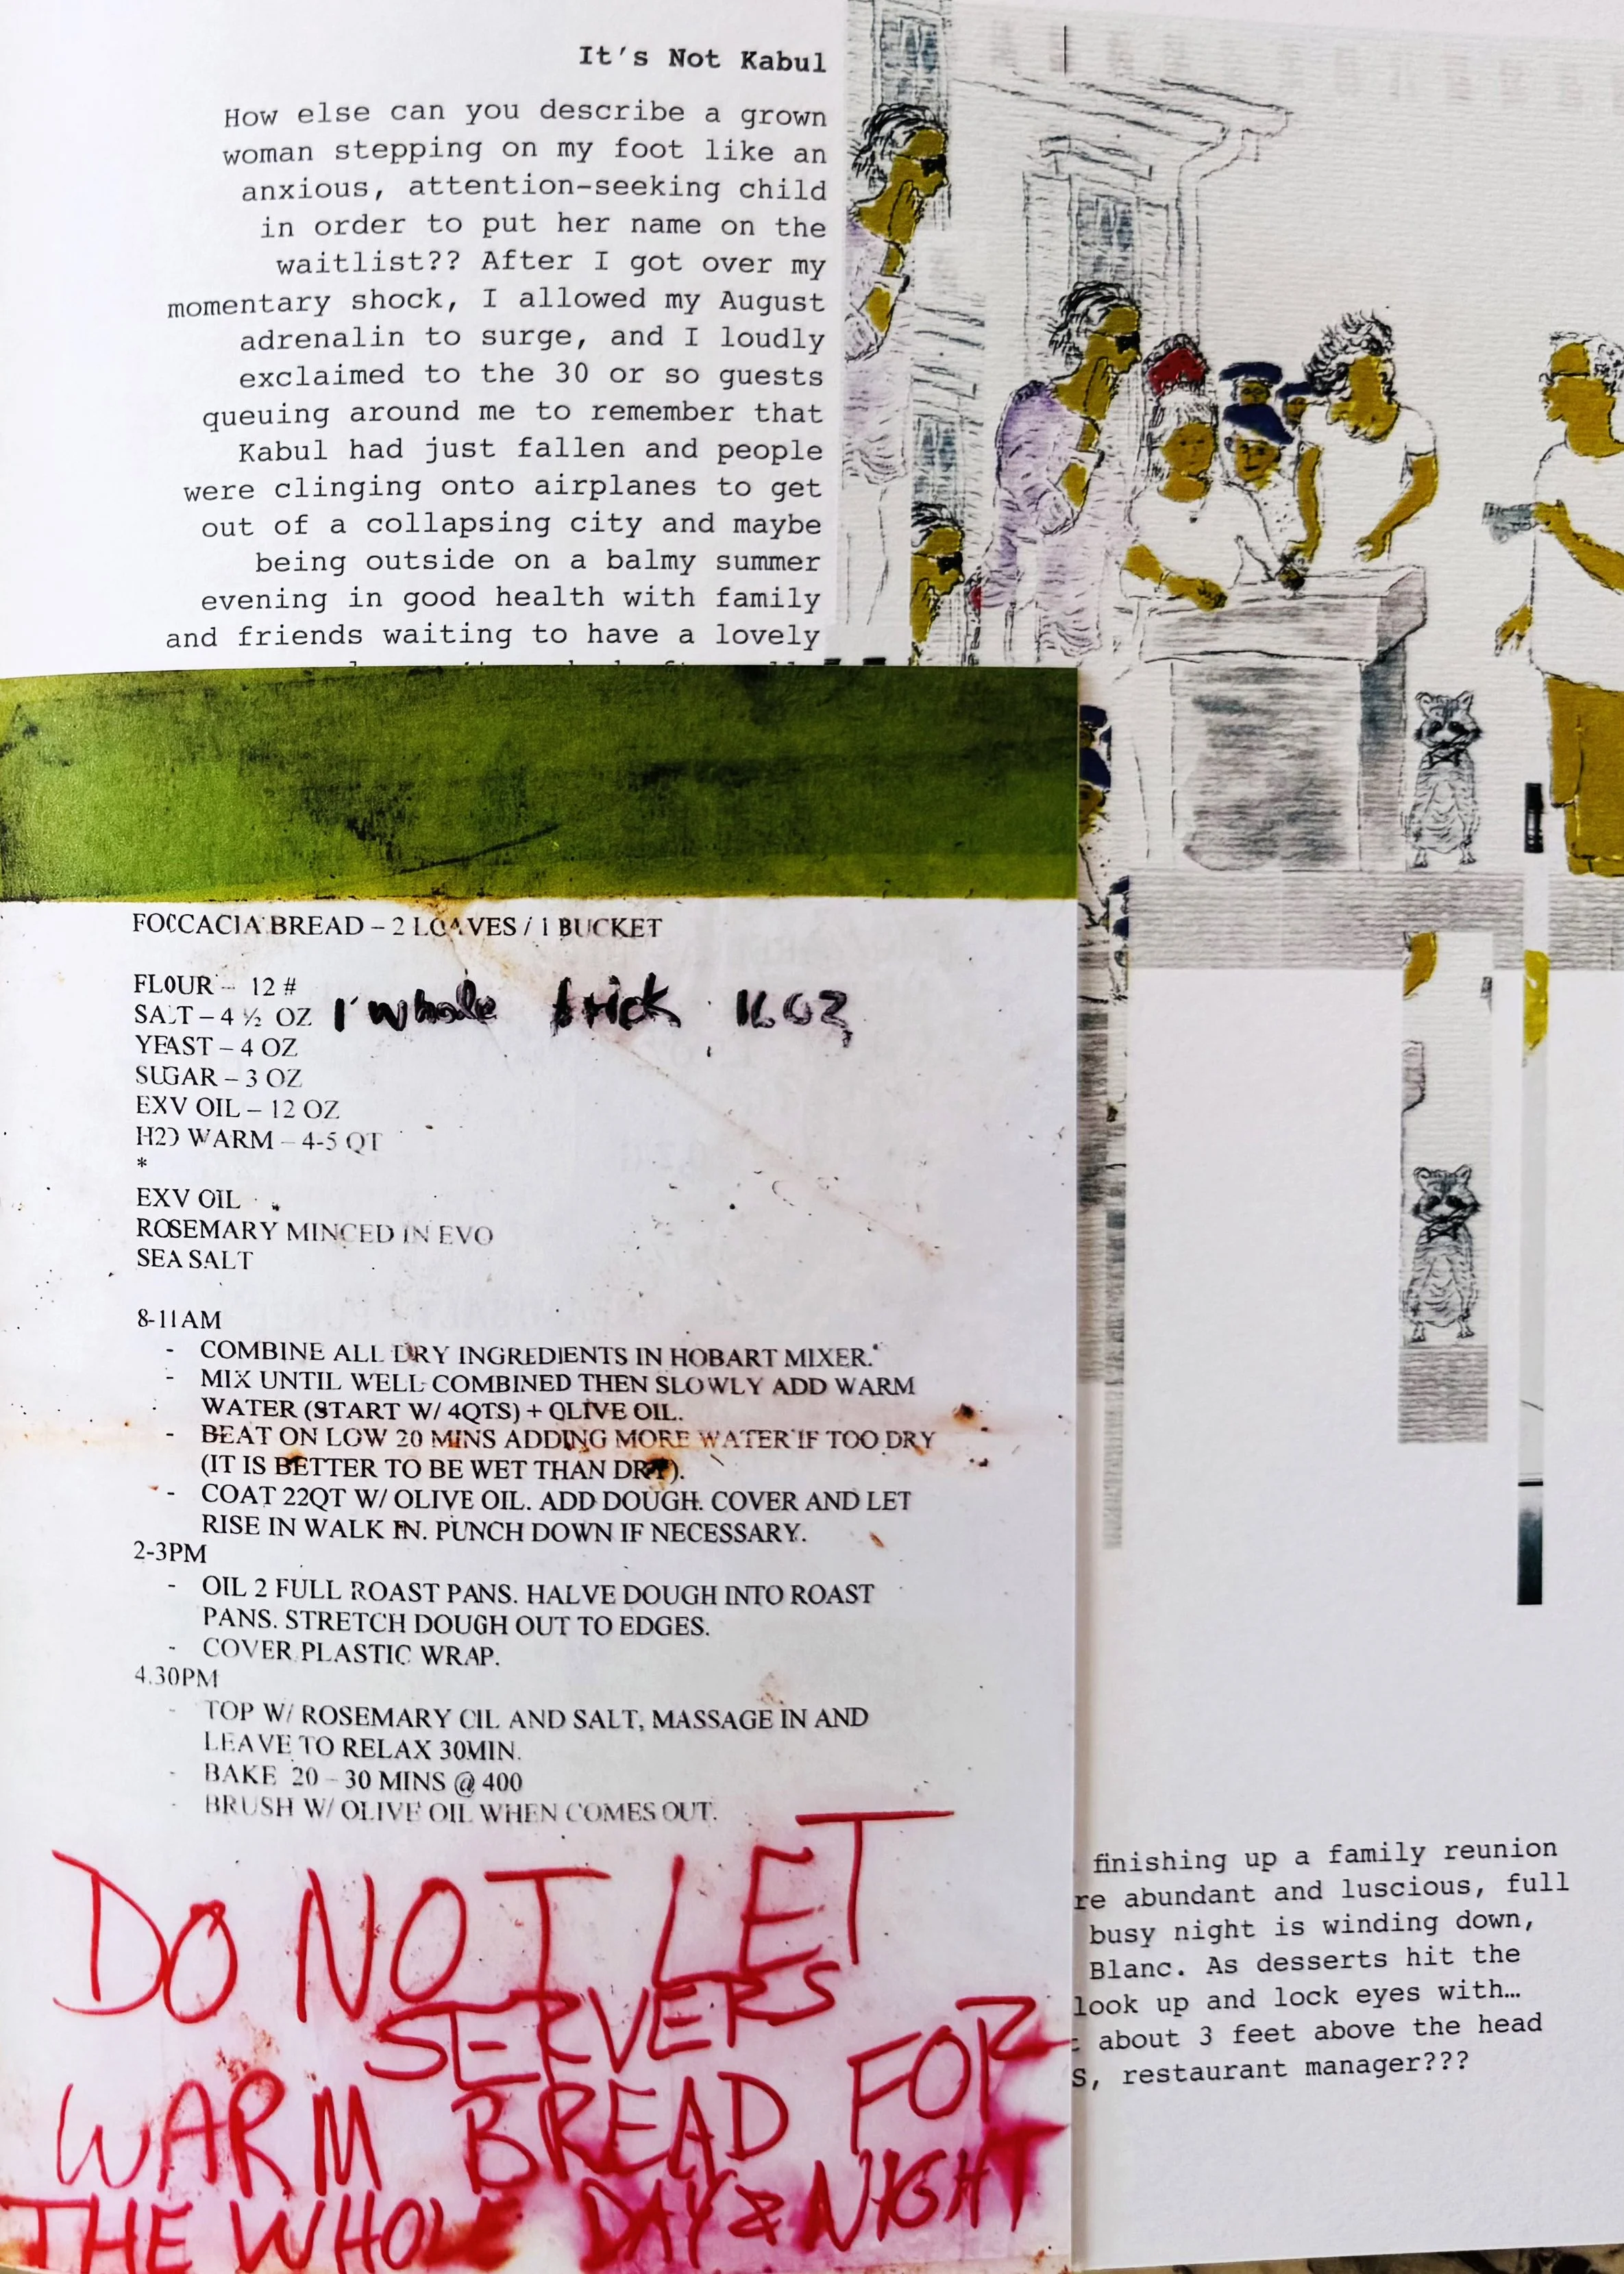 It's Not Kabul
How else can you describe a grown
woman stepping on my foot like an
anxious, attention-seeking child
in order to put her name on the
waitlist?? After I got over my
momentary shock, I allowed my August
adrenalin to surge, and I loudly
exclaimed to the 30 or so guests
queuing around me to remember that
Kabul had just fallen and people
were clinging onto airplanes to get
out of a collapsing city and maybe
being outside on a balmy summer
evening in good health with family
and friends waiting to have a lovely
FOCCACIA BREAD – 2 LOAVES / 1 BUCKET
FLOUR – 12 #
SALT – 4 ½ OZ 1 whole brick 16 OZ
YEAST – 4 OZ
SUGAR – 3 OZ
EXV OIL – 12 OZ
H2O WARM – 4-5 QT
*
EXV OIL
ROSEMARY MINCED IN EVO
SEA SALT
8-11AM
- COMBINE ALL DRY INGREDIENTS IN HOBART MIXER.
- MIX UNTIL WELL COMBINED THEN SLOWLY ADD WARM
WATER (START W/ 4QTS) + OLIVE OIL.
- BEAT ON LOW 20 MINS ADDING MORE WATER IF TOO DRY
(IT IS BETTER TO BE WET THAN DRY).
- COAT 22QT W/ OLIVE OIL. ADD DOUGH. COVER AND LET
RISE IN WALK IN. PUNCH DOWN IF NECESSARY.
2-3PM
- OIL 2 FULL ROAST PANS. HALVE DOUGH INTO ROAST
PANS. STRETCH DOUGH OUT TO EDGES.
- COVER PLASTIC WRAP.
4.30PM
- TOP W/ ROSEMARY OIL AND SALT, MASSAGE IN AND
LEAVE TO RELAX 30MIN.
- BAKE 20 – 30 MINS @ 400
- BRUSH W/ OLIVE OIL WHEN COMES OUT.
DO NOT LET
SERVERS
WARM BREAD FOR
THE WHOLE DAY & NIGHT
finishing up a family reunion
re abundant and luscious, full
busy night is winding down,
Blanc. As desserts hit the
look up and lock eyes with…
about 3 feet above the head
S, restaurant manager???